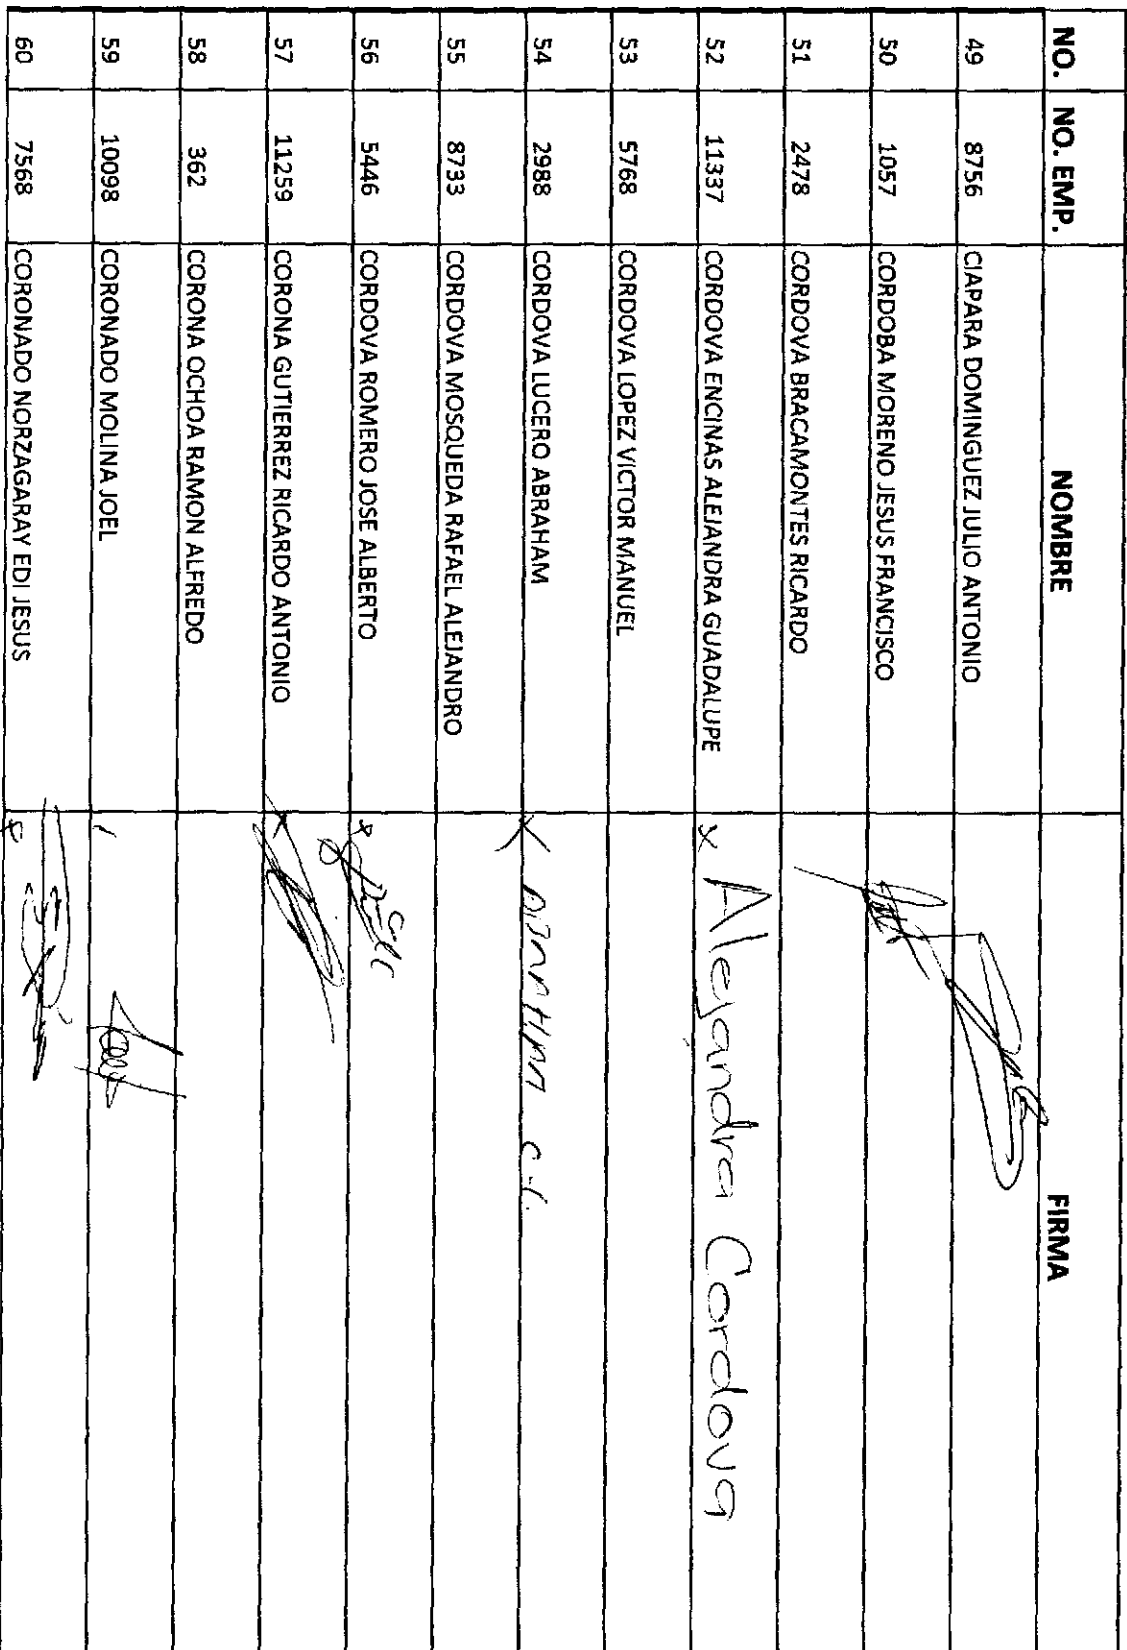 NO. NO. EMP. NOMBRE FIRMA
49 8756 CIAPARA DOMINGUEZ JULIO ANTONIO
50 1057 CORDOBA MORENO JESUS FRANCISCO
51 2478 CORDOVA BRACAMONTES RICARDO
52 11337 CORDOVA ENCINAS ALEJANDRA GUADALUPE x Alejandra Cordova
53 5768 CORDOVA LOPEZ VICTOR MANUEL
54 2988 CORDOVA LUCERO ABRAHAM X
55 8733 CORDOVA MOSQUEDA RAFAEL ALEJANDRO
56 5446 CORDOVA ROMERO JOSE ALBERTO x
57 11259 CORONA GUTIERREZ RICARDO ANTONIO x
58 362 CORONA OCHOA RAMON ALFREDO
59 10098 CORONADO MOLINA JOEL
60 7568 CORONADO NORZAGARAY EDI JESUS